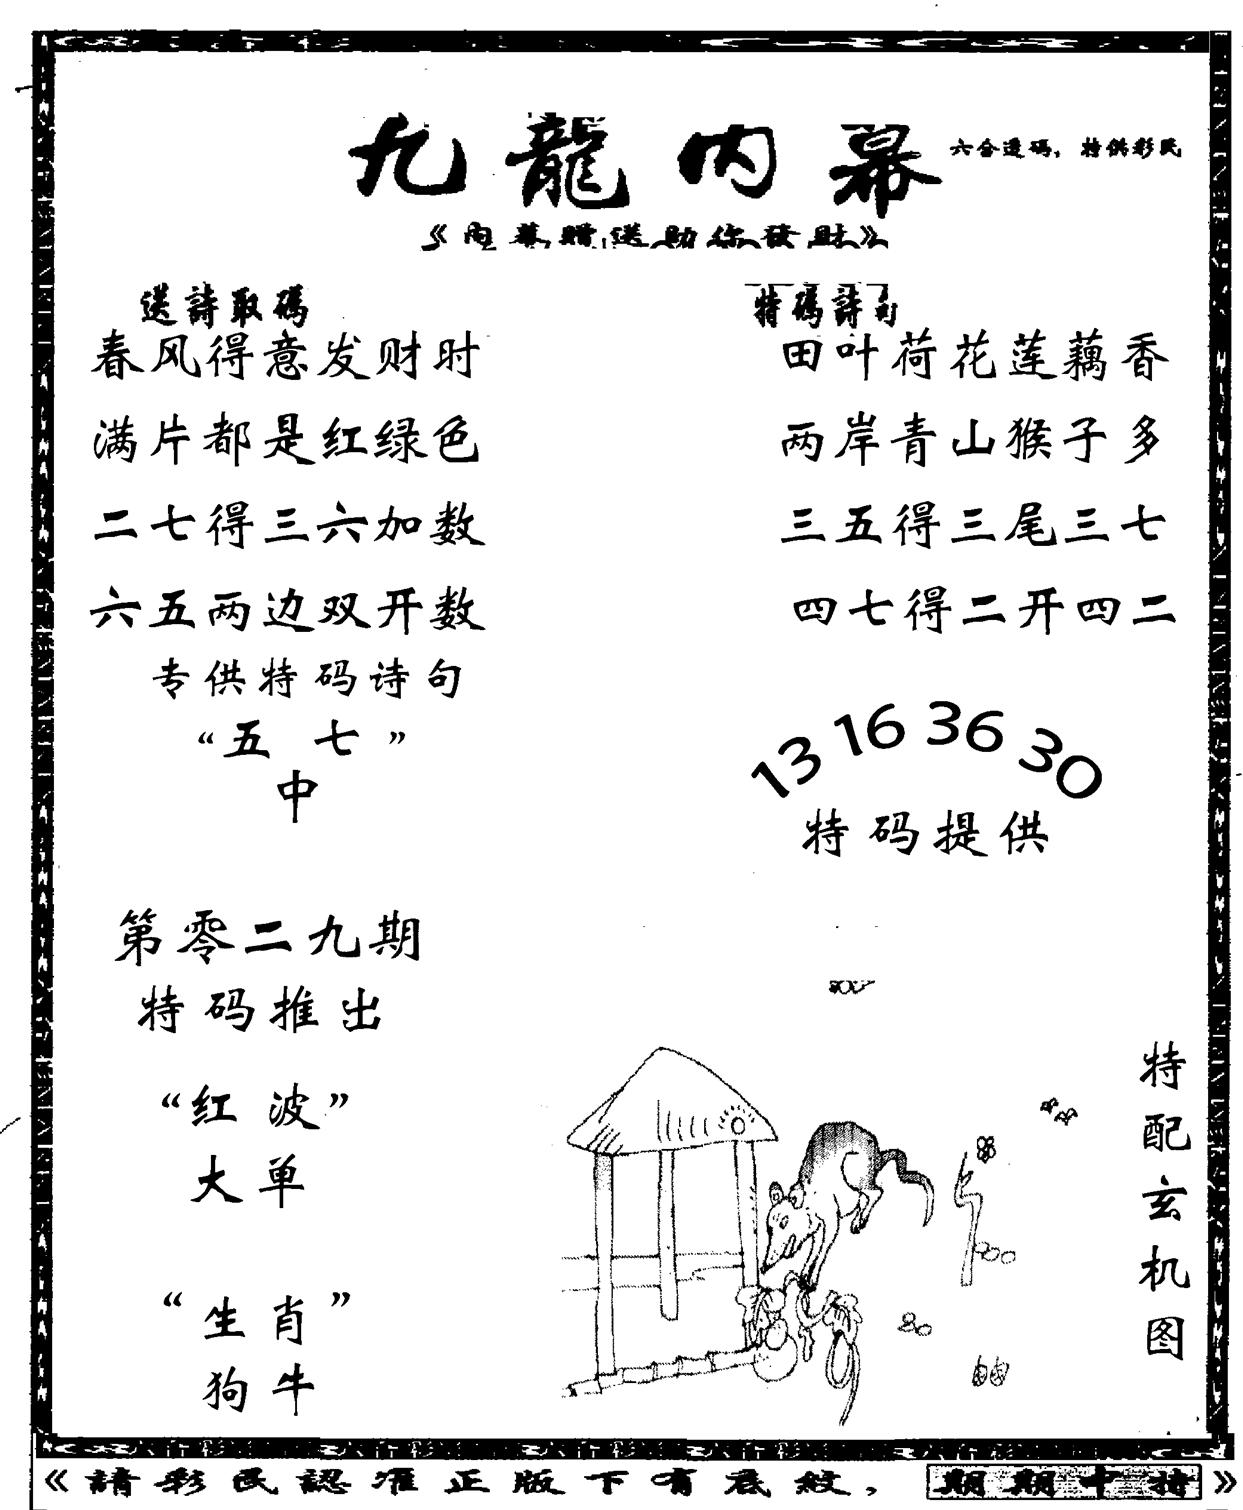 九龍内幕
六合透码，特供彩民
《内幕贈送助你發財》
送詩取碼
春风得意发财时
满片都是红绿色
二七得三六加数
六五两边双开数
专供特码诗句
“五七”
中
特碼詩句
田叶荷花莲藕香
两岸青山猴子多
三五得三尾三七
四七得二开四二
13 16 36 30
特码提供
第零二九期
特码推出
“红波”
大单
“生肖”
狗牛
特配玄机图
《請彩民認准正版下有底紋，期期中特》